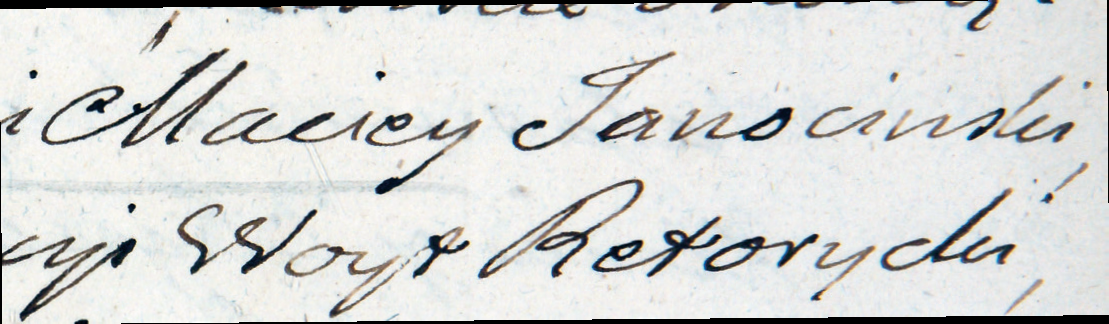 i Maciey Janocinski,
cyi Woyt Retorycki,